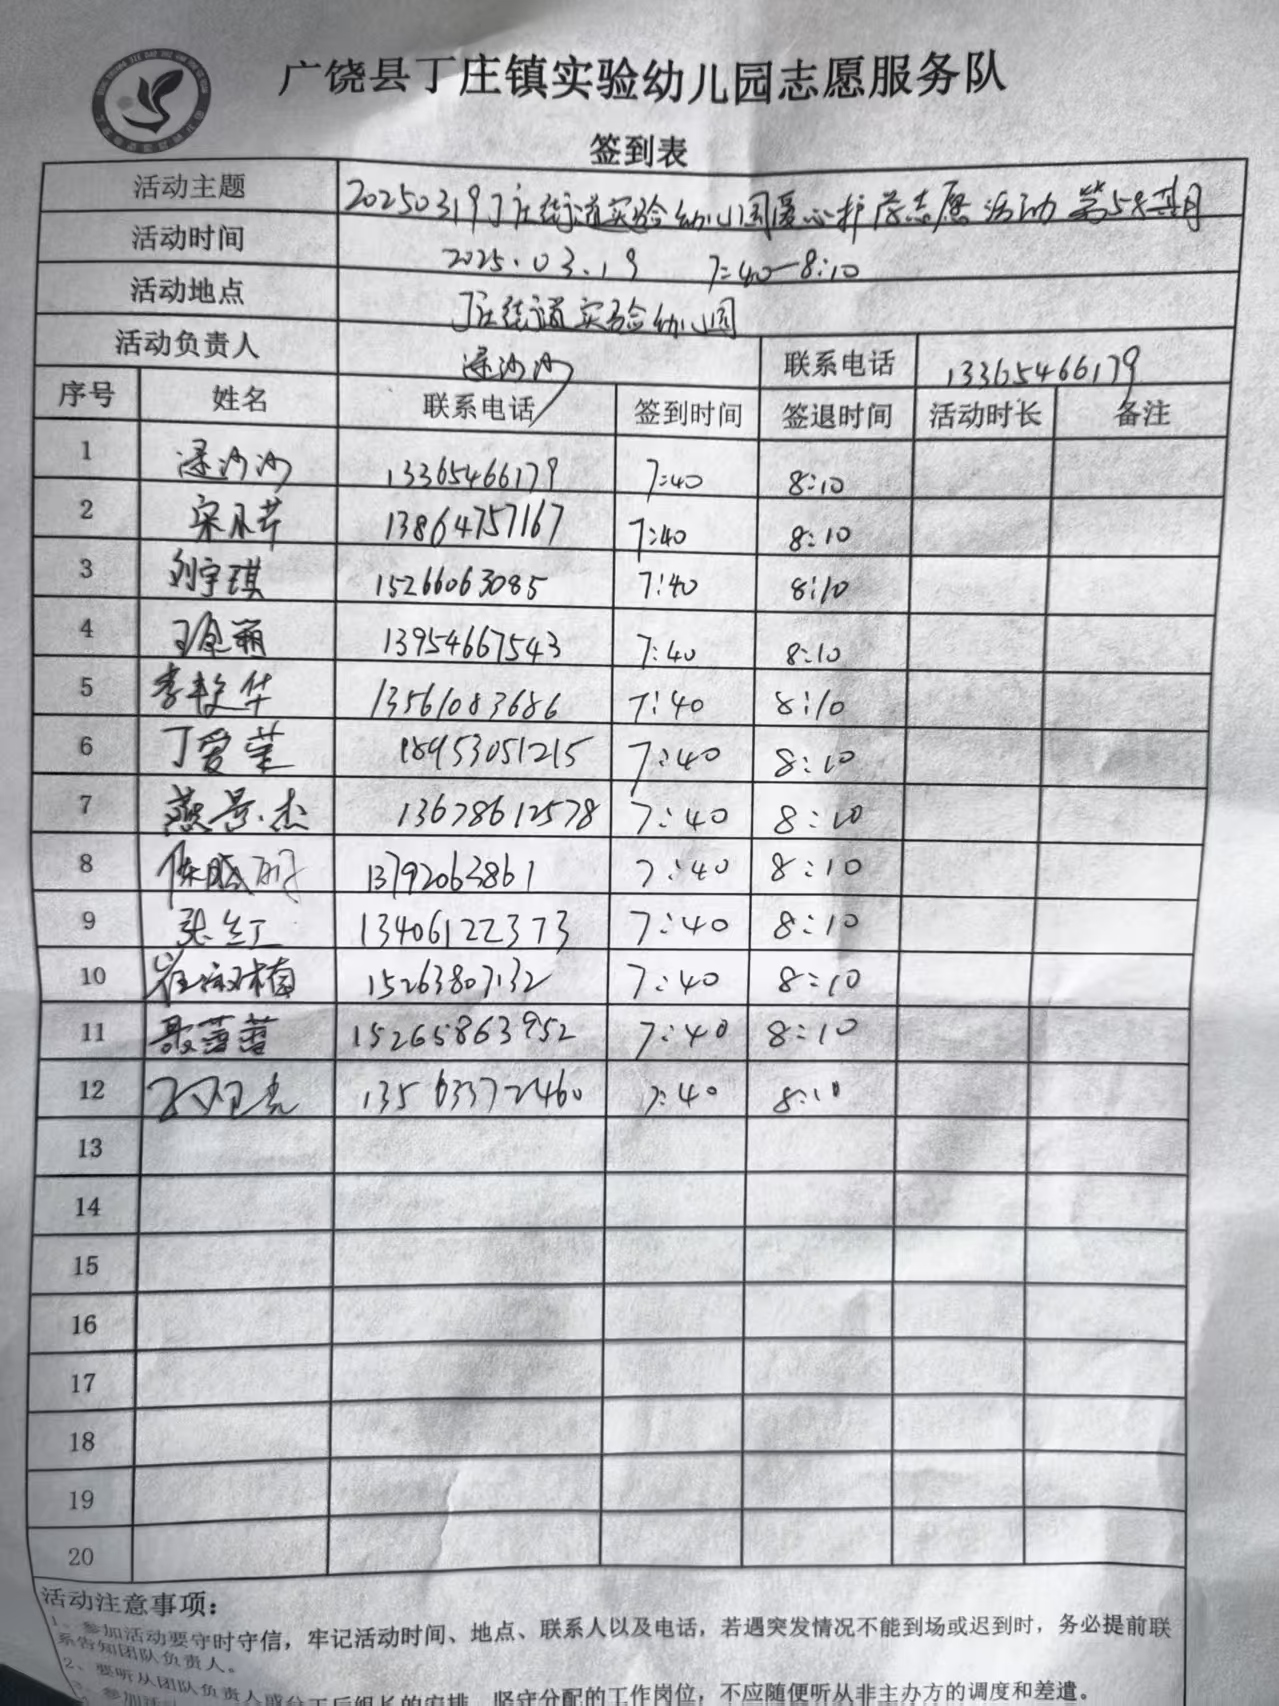 广饶县丁庄镇实验幼儿园志愿服务队
签到表
活动主题 20250319丁庄街道实验幼儿园爱心护学志愿活动 第58期
活动时间 2025.03.19 7:40-8:10
活动地点 丁庄街道实验幼儿园
活动负责人 逯沙沙 联系电话 13365466179
序号 姓名 联系电话 签到时间 签退时间 活动时长 备注
1 逯沙沙 13365466179 7:40 8:10
2 13864757167 7:40 8:10
3 刘宇琪 15266063085 7:40 8:10
4 13954667543 7:40 8:10
5 李艳华 13561083686 7:40 8:10
6 丁爱莲 18953051215 7:40 8:10
7 燕景杰 13678612578 7:40 8:10
8 13792063861 7:40 8:10
9 张红 13406122373 7:40 8:10
10 崔淑梅 15263807132 7:40 8:10
11 聂蕾蕾 15265863952 7:40 8:10
12 13563372460 7:40 8:10
13
14
15
16
17
18
19
20
活动注意事项：
1、参加活动要守时守信，牢记活动时间、地点、联系人以及电话，若遇突发情况不能到场或迟到时，务必提前联
系告知团队负责人。
2、要听从团队负责人或分工后组长的安排，坚守分配的工作岗位，不应随便听从非主办方的调度和差遣。
3、参加活